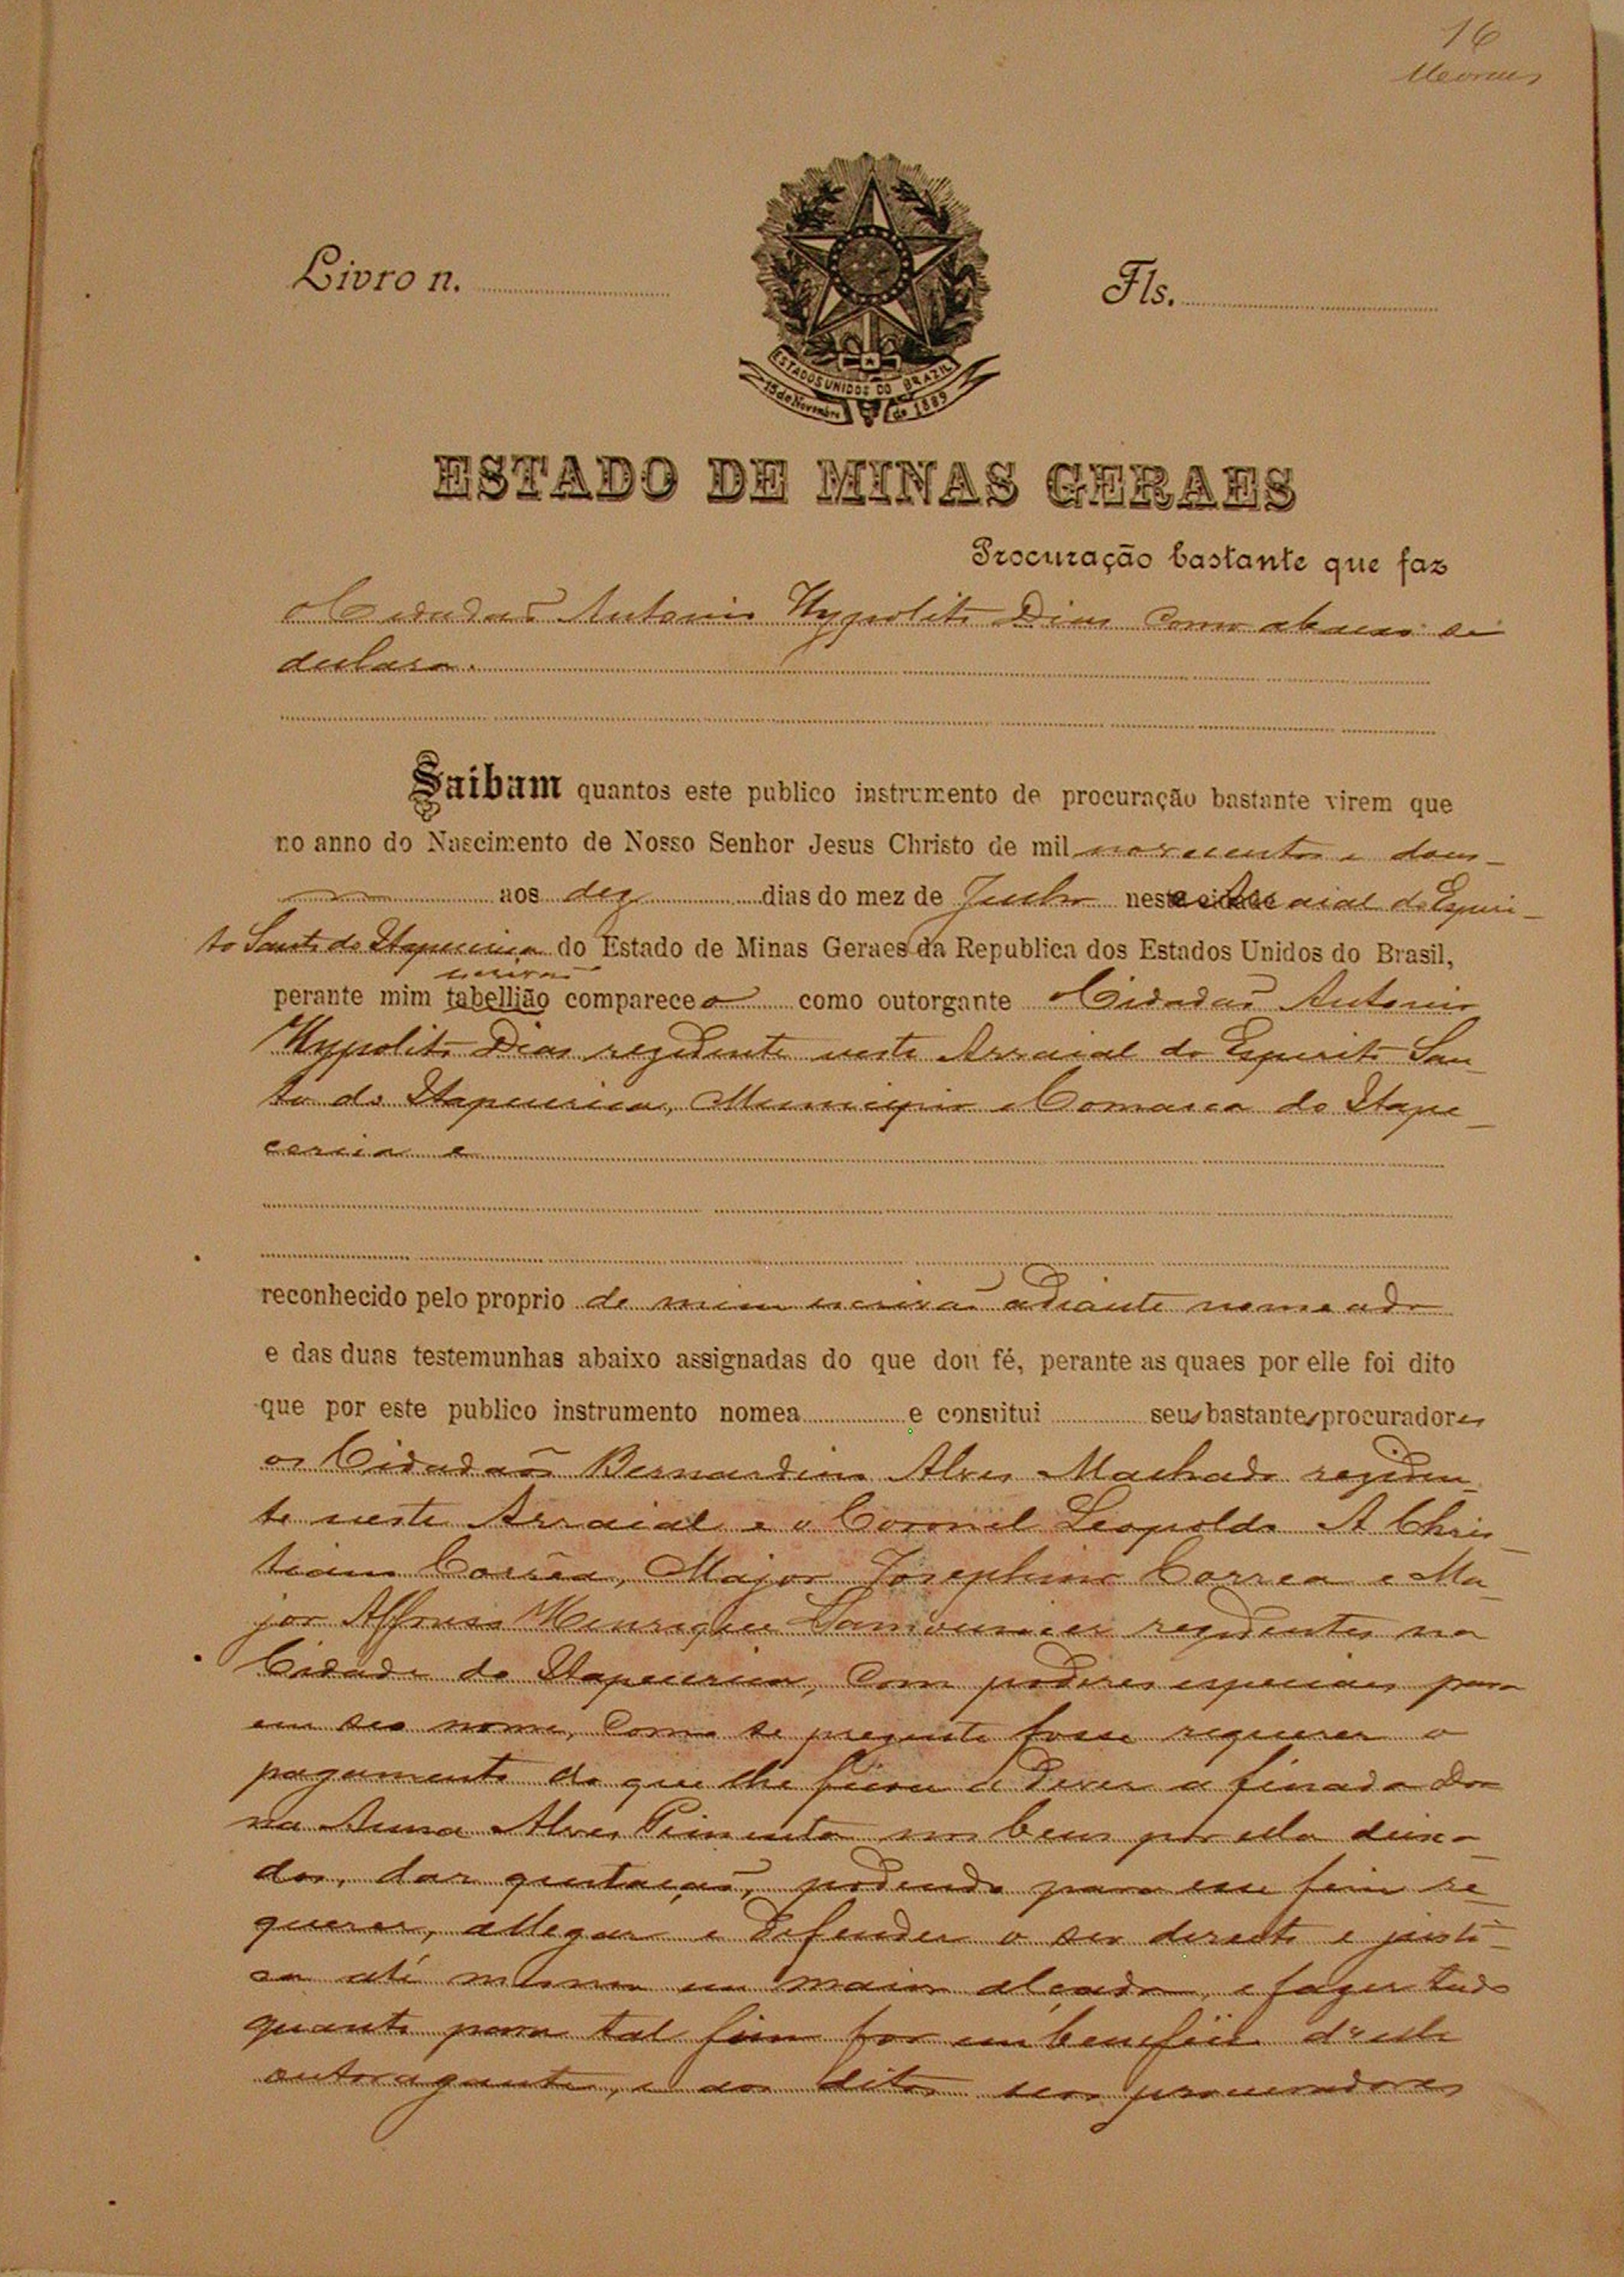 16
Livro n.
Fls.
ESTADOS UNIDOS DO BRAZIL
15 de Novembro de 1889
ESTADO DE MINAS GERAES
Procuração bastante que faz
o Cidadaõ Antonio Hypolito Dias como abaixo se
declara.
Saibam quantos este publico instrumento de procuração bastante virem que
no anno do Nascimento de Nosso Senhor Jesus Christo de mil novecentos e dous
aos dez dias do mez de Junho neste Arraial do Espiri-
to Santo de Itapecerica do Estado de Minas Geraes da Republica dos Estados Unidos do Brasil,
escrivaõ
perante mim tabellião compareceo como outorgante o Cidadaõ Antonio
Hypolito Dias rezidente neste Arraial do Espirito San
to de Itapecerica, Municipio e Comarca de Itape
cerica e
reconhecido pelo proprio de mim escrivaõ adiante nomeado
e das duas testemunhas abaixo assignadas do que dou fé, perante as quaes por elle foi dito
que por este publico instrumento nomea e constitui seus bastantes procuradores
os Cidadaõs Bernardino Alves Machado reziden
te neste Arraial e o Coronel Leopoldo A Chris
tiano Corrêa, Major Josephino Correa e Ma
jor Affonso Henrique rezidentes na
Cidade de Itapecerica, com poderes especiaes para
em seo nome, como se prezente fosse requerer o
pagamento do que lhe ficou a dever a finada Do
na Anna Alves Pimenta nos bens por ella deixa
dos, dar quitaçaõ, podendo para esse fim re
querer, allegar e defender o seo direito e justi-
sa até mesmo em maior alçada, e fazer tudo
quanto para tal fim for em beneficio d'elle
outoragante, e aos ditos seos procuradores